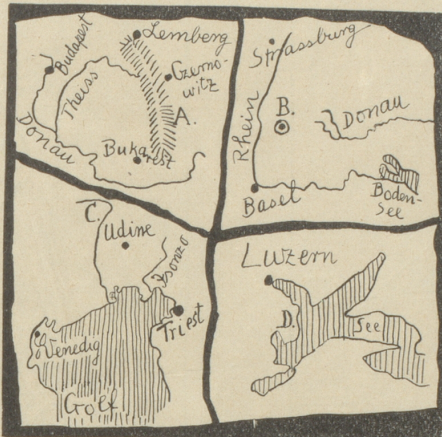 Lemberg
Budapest
Czerno-
witz
Theiss
A.
Donau
Bukarest
Strassburg
B.
Rhein
Donau
Basel
Boden-
see
C.
Udine
Isonzo
Triest
Venedig
Golf
Luzern
D.
See